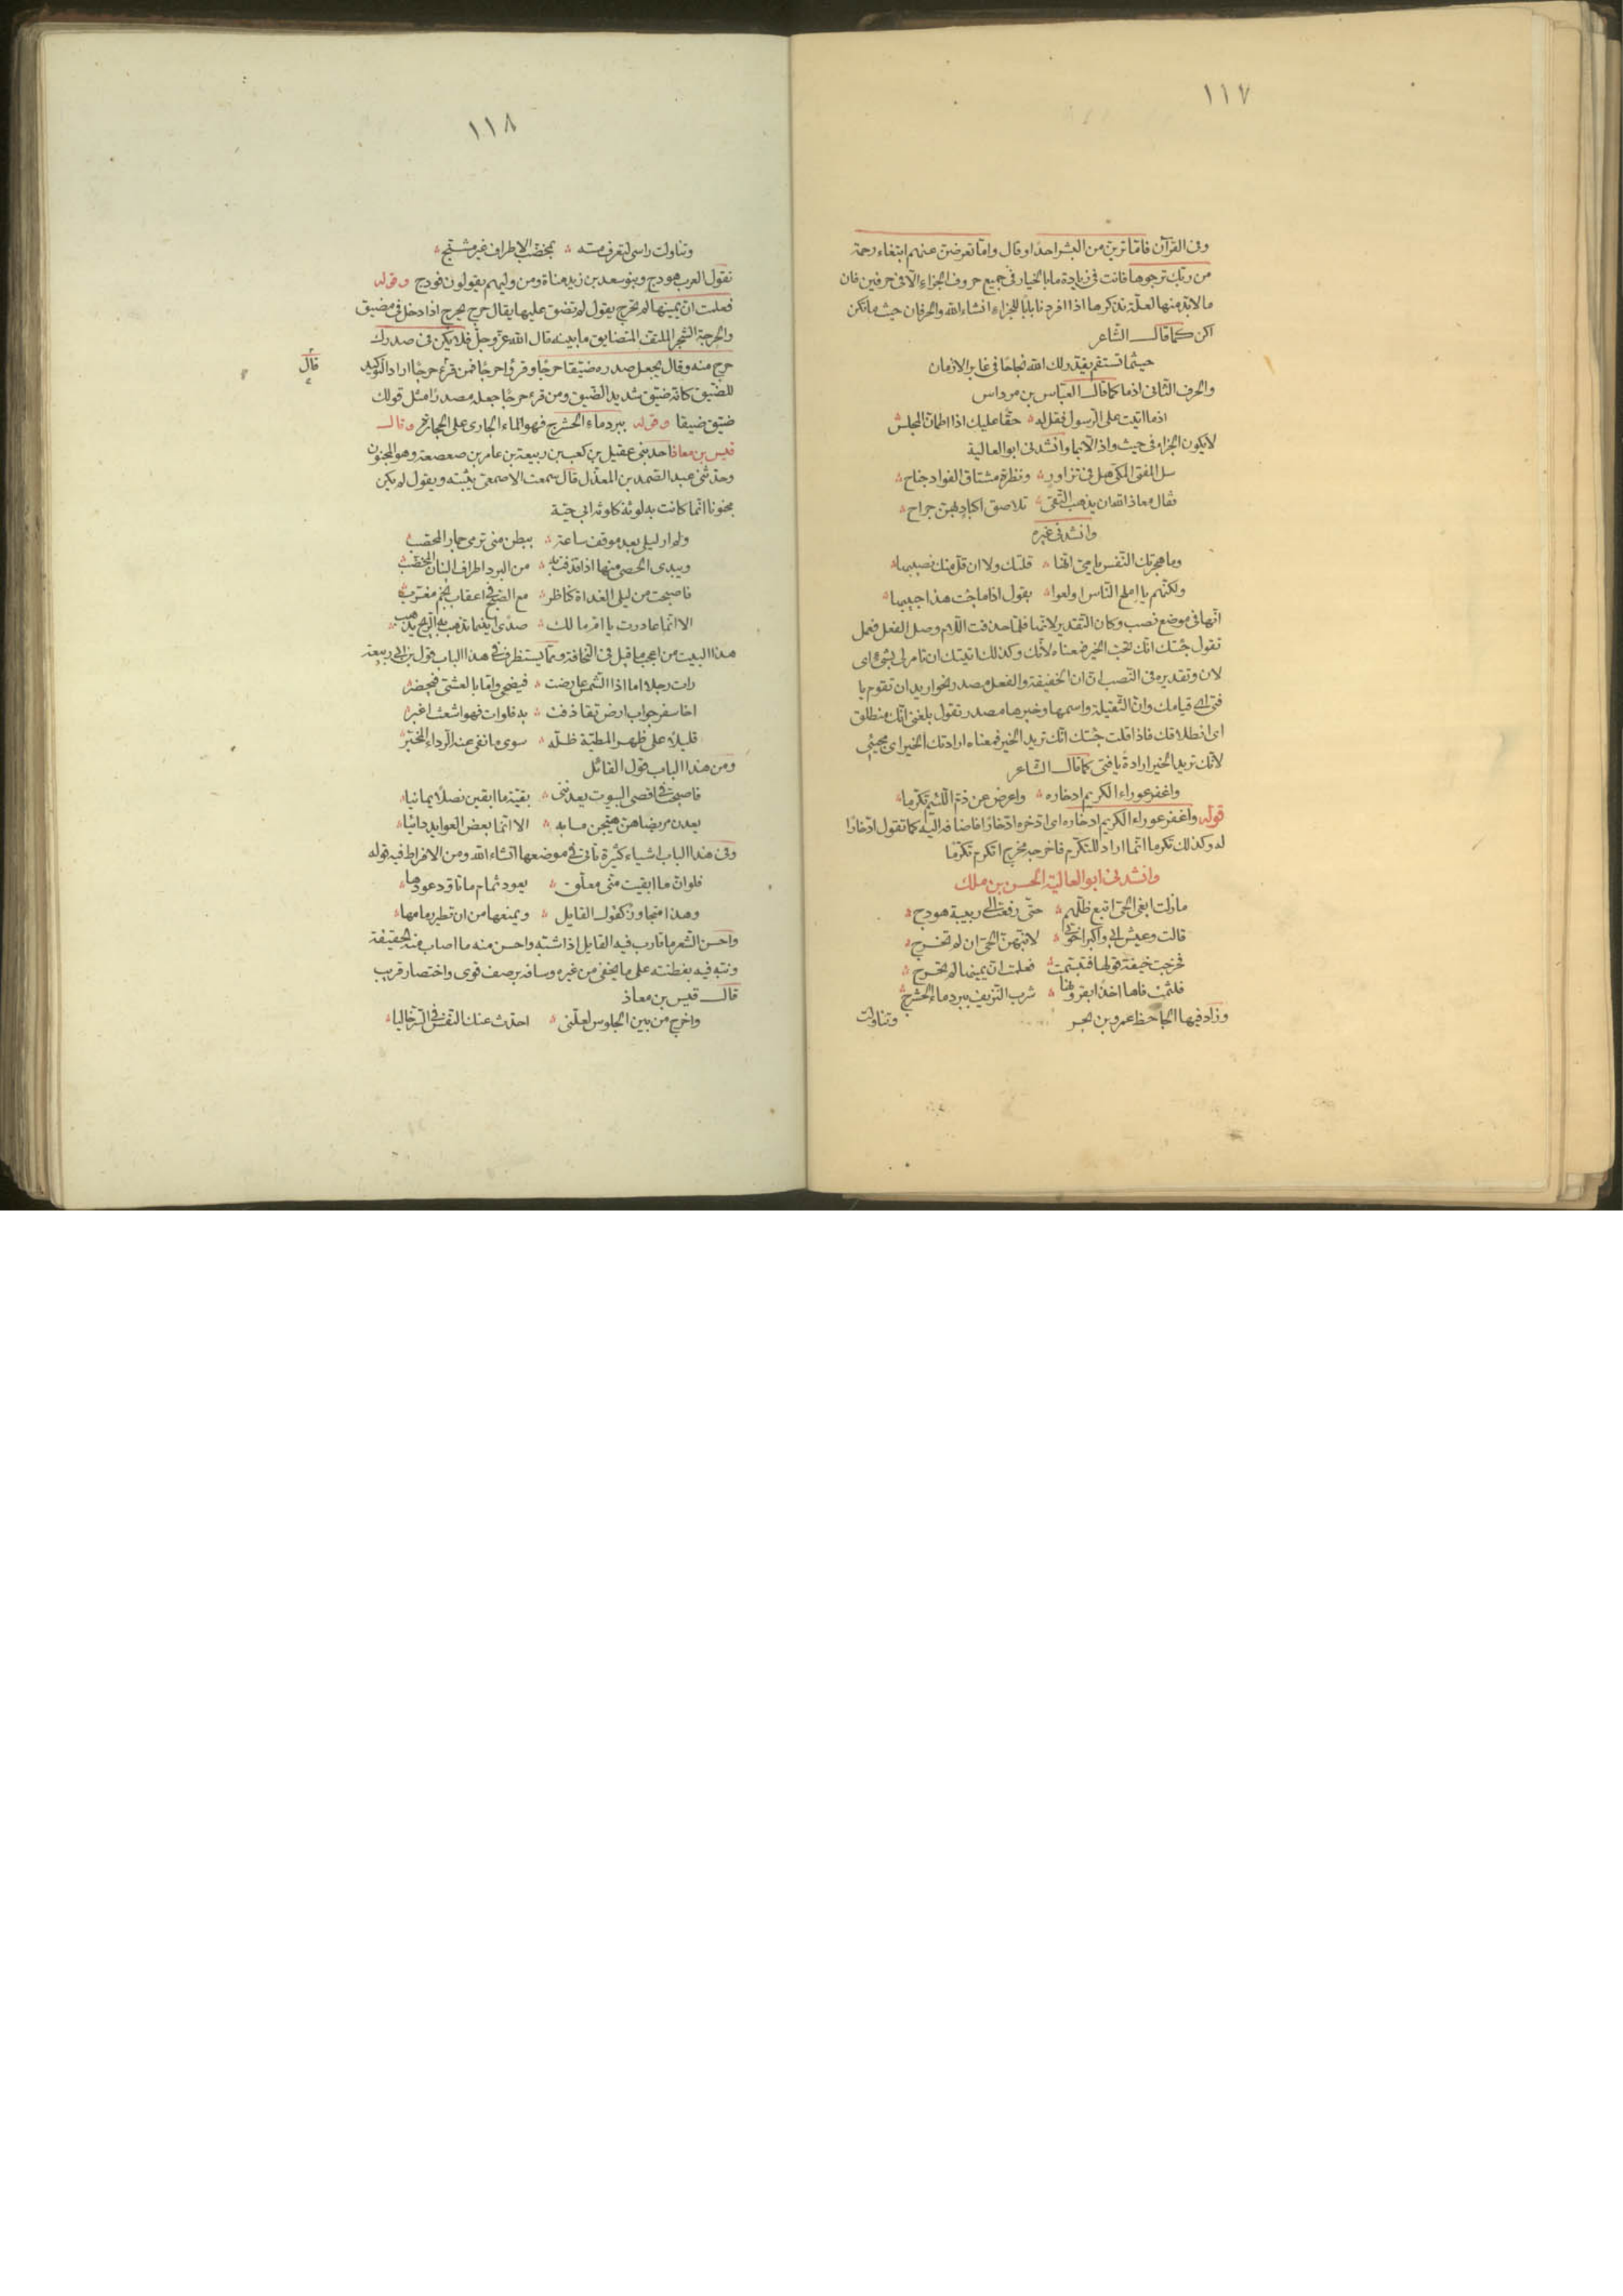 ١١٧
وفى القرآن فامّا ترينّ من البشر احدًا وقال وامّا تعرضنّ عنهم ابتغاء رحمة
من ربّك ترجوها فانت فى زيادة ما بالخيار فى جميع حروف الجزاء الّا فى حرفين فان
ما لا بدّ منها لعلّة نذكرها اذا افردنا بابًا للجزاء انشاء الله والحرفان حيث ما تكن
اكن كما قال الشّاعر
حيثما تستقم يقدّر لك الله نجاحًا فى غابر الازمان
والحرف الثّانى اذما كما قال العبّاس بن مرداس
اذما اتيت على الرّسول فقل له ۞ حقّا عليك اذا اطمانّ المجلس
لا يكون الجزاء فى حيث واذ الّا بما وانشدنى ابو العالية
سل المفتى المكّى هل فى تزاور ۞ ونظرة مشتاق الفواد جناح
فقال معاذ الله ان يذهب التّقى ۞ تلاصق اكباد بهنّ جراح
وانشدنى غيره
وما هجرتك النّفس يا مىّ انّها ۞ قلتك ولا ان قلّ منك نصيبها
ولكنّهم يا املح النّاس اولعوا ۞ بقول اذا ما جئت هذا حبيبها
انّها فى موضع نصب وكان التّقدير لانّها فلمّا حذفت اللّام وصل الفعل فعمل
تقول جئتك انّك تحبّ الخير فمعناه لانّك وكذلك اتيتك ان تامر لى بشىء اى
لان وتقديره فى النّصب انّ ان الخفيفة والفعل مصدر نحو اريد ان تقوم يا
فتى اى قيامك وانّ الثّقيلة واسمها وخبرها مصدر تقول بلغنى انّك منطلق
اى انطلاقك فاذا قلت جئتك انّك تريد الخير فمعناه ارادتك الخير اى مجيئى
لانّك تريد الخير ارادة يا فتى كما قال الشّاعر
واغفر عوراء الكريم ادخاره ۞ واعرض عن ذمّ اللّئيم تكرّما
قوله واغفر عوراء الكريم ادخاره اى ادّخره ادّخارًا فاضافه اليه كما تقول ادّخارًا
له وكذلك تكرما انّما اراد للتكرّم فاخرجه مخرج اتكرم تكرّمًا
وانشدنى ابو العالية الحسن بن ملك
ما زلت ابغى الحىّ اتبع ظلّهم ۞ حتّى دفعت الى ربيبة هودج
قالت وعيش ابى واكبر اخوتى ۞ لانبّهنّ الحىّ ان لم تخرج
فخرجت خيفة قولها فتبسّمت ۞ فعلمت انّ يمينها لم تحرج
فلثمت فاها اخذًا بقرونها ۞ شرب النّزيف ببرد ماء الحشرج
وزاد فيها الجاحظ عمرو بن بحر
وتناولت
١١٨
وتناولت راسى لتعرف مسّه ۞ بمخضّب الاطراف غير مشنّج
تقول العرب هودج وبنو سعد بن زيد مناة ومن وليهم يقولون فودج وقوله
فعلمت انّ يمينها لم تحرج يقول لم تضق عليها يقال حرج يحرج اذا دخل فى مضيق
والحرجة الشّجر الملتفّ المتضايق ما بينه قال الله عزّ وجلّ فلا يكن فى صدرك
حرج منه وقال يجعل صدره ضيّقا حرجًا وقرؤا حرجًا فمن قرء حرجًا اراد التّوكيد
قال
للضّيق كانّه ضيّق شديد الضّيق ومن قرء حرجًا جعله مصدرًا مثل قولك
ضيّق ضيقا وقوله ببرد ماء الحشرج فهو الماء الجارى على الحجارة وقال
قيس بن معاذ احد بنى عقيل بن كعب بن ربيعة بن عامر بن صعصعة وهو المجنون
وحدّثنى عبد الصّمد بن المعذّل قال سمعت الاصمعىّ يثبّته ويقول لم يكن
مجنونا انّما كانت به لوثة كلوثة ابى حيّة
ولم ار ليلى بعد موقف ساعة ۞ ببطن منى ترمى جمار المحصّب
ويبدى الحصى منها اذا قذفت به ۞ من البرد اطراف البنان المخضّب
فاصبحت من ليلى الغداة كناظر ۞ مع الصّبح فى اعقاب نجم مغرّب
الا انّما غادرت يا امّ مالك ۞ صدًى اينما تذهب به الرّيح يذهب
هذا البيت من اعجب ما قيل فى النّحافة وممّا يستظرف فى هذا الباب قول بن ابى ربيعة
رات رجلا اما اذا الشّمس عارضت ۞ فيضحى وامّا بالعشىّ فيخصر
اخا سفر جوّاب ارض تقاذفت ۞ به فلوات فهو اشعث اغبر
قليلًا على ظهر المطيّة ظلّه ۞ سوى ما نفى عنه الرّداء المحبّر
ومن هذا الباب قول القائل
فاصبحت فى اقصى البيوت يعدننى ۞ بقيّة ما ابقين نصلًا يمانيا
يعدن مريضا هنّ هيّجن ما به ۞ الا انّما بعض العوايد دائيا
وفى هذا الباب اشياء كثيرة تأتى فى موضعها انشاء الله ومن الافراط فيه قوله
فلو انّ ما ابقيت منّى معلّق ۞ بعود ثمام ما تاوّد عودها
وهذا متجاوز كقول القايل ۞ ويمنعها من ان تطير زمامها
واحسن الشّعر ما قارب فيه القايل اذا شبّه واحسن منه ما اصاب فيه الحقيقة
ونبّه فيه بفطنته على ما يخفى من غيره وساقه برصف قوى واختصار قريب
قال قيس بن معاذ
واخرج من بين الجلوس لعلّنى ۞ احدّث عنك النّفس فى السّرّ خاليا